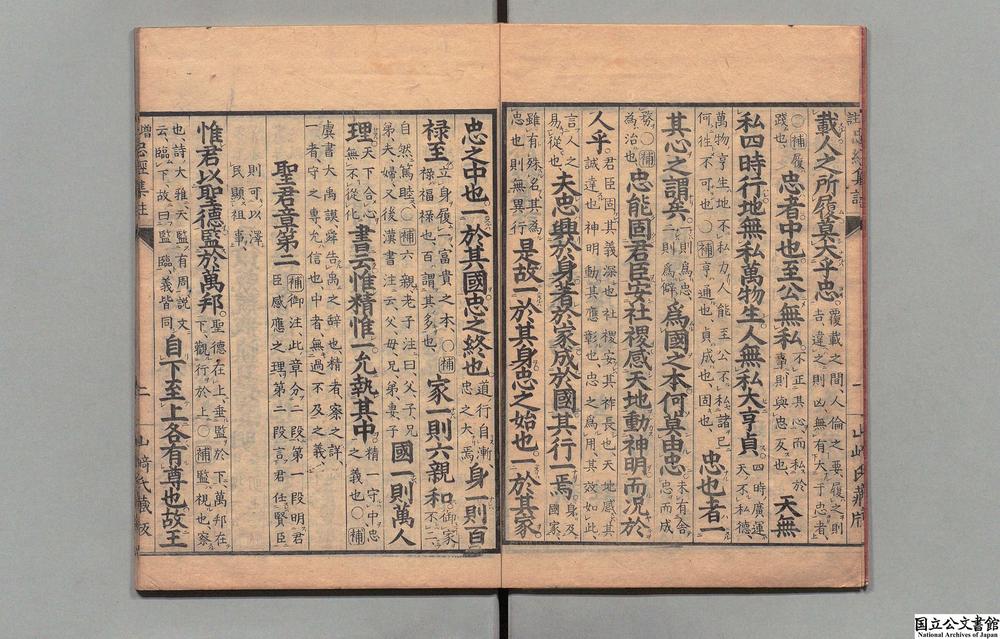 註忠經集註 一 山崎氏藏版
載人之所履莫大乎忠。覆載之間人倫之要履之則吉違之則凶無有大于忠者、
○補履踐也、忠者中也至公無私。不正其心而私於事則與忠反也、天無
私四時行地無私萬物生人無私大亨貞四時廣運天不私德、
萬物亨生地不私力人能至公不私諸己何往不可也○補亨通也貞成也固也、忠也者一
其心之謂矣一則為忠二則為僻為國之本何莫由忠未有舍忠而成
務、○補為治也忠能固君臣安社稷感天地動神明而况於
人乎君臣固其義深也社稷安其祚長也天地感其誠達也神明動其應彰也、忠之為用、其效如此、
言人之易從也夫忠興於身著於家成於國其行一焉身及國家
雖有殊名其為忠也則無異行是故一於其身忠之始也一於其家
忠之中也一於其國忠之終也道行自漸、忠之大焉身一則百
祿至立身履一富貴之本、○補祿福祿也、百謂其多也、家一則六親和御家不二、
自然篤睦、○補六親老子注曰父子兄弟夫婦又後漢書注云父母兄弟妻子國一則萬人
理天下合心無不從化書云惟精惟一允執其中精一守中忠之義也○補
虞書大禹謨舜告禹之辭也精者察之詳、一者守之專允信也中者無過不及之義、
聖君章第二補御注此章分二段第一段明君臣感應之理、第二段言君任賢臣
則可以澤民顯祖事、
惟君以聖德監於萬邦。聖德在上垂監於下萬邦在下觀行於上○補監視也察
也、詩大雅天監有周說文云臨下故曰監臨義皆同自下至上各有尊也故王
增忠經集註 二 山崎氏藏版
国立公文書館
National Archives of Japan